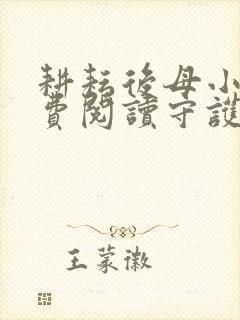 耕耘後母小
費閱讀守護
王蒙徽